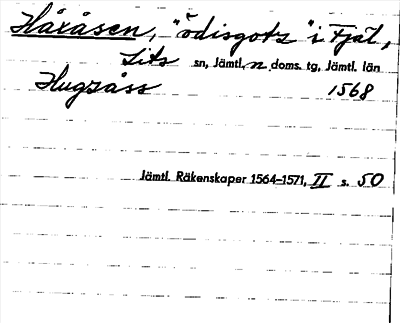 Håxåsen, "ödisgotz" i Fjäl,
Lits sn, Jämtl. n doms. tg, Jämtl. län
Hugsåss 1568
Jämtl. Räkenskaper 1564–1571, II s. 50